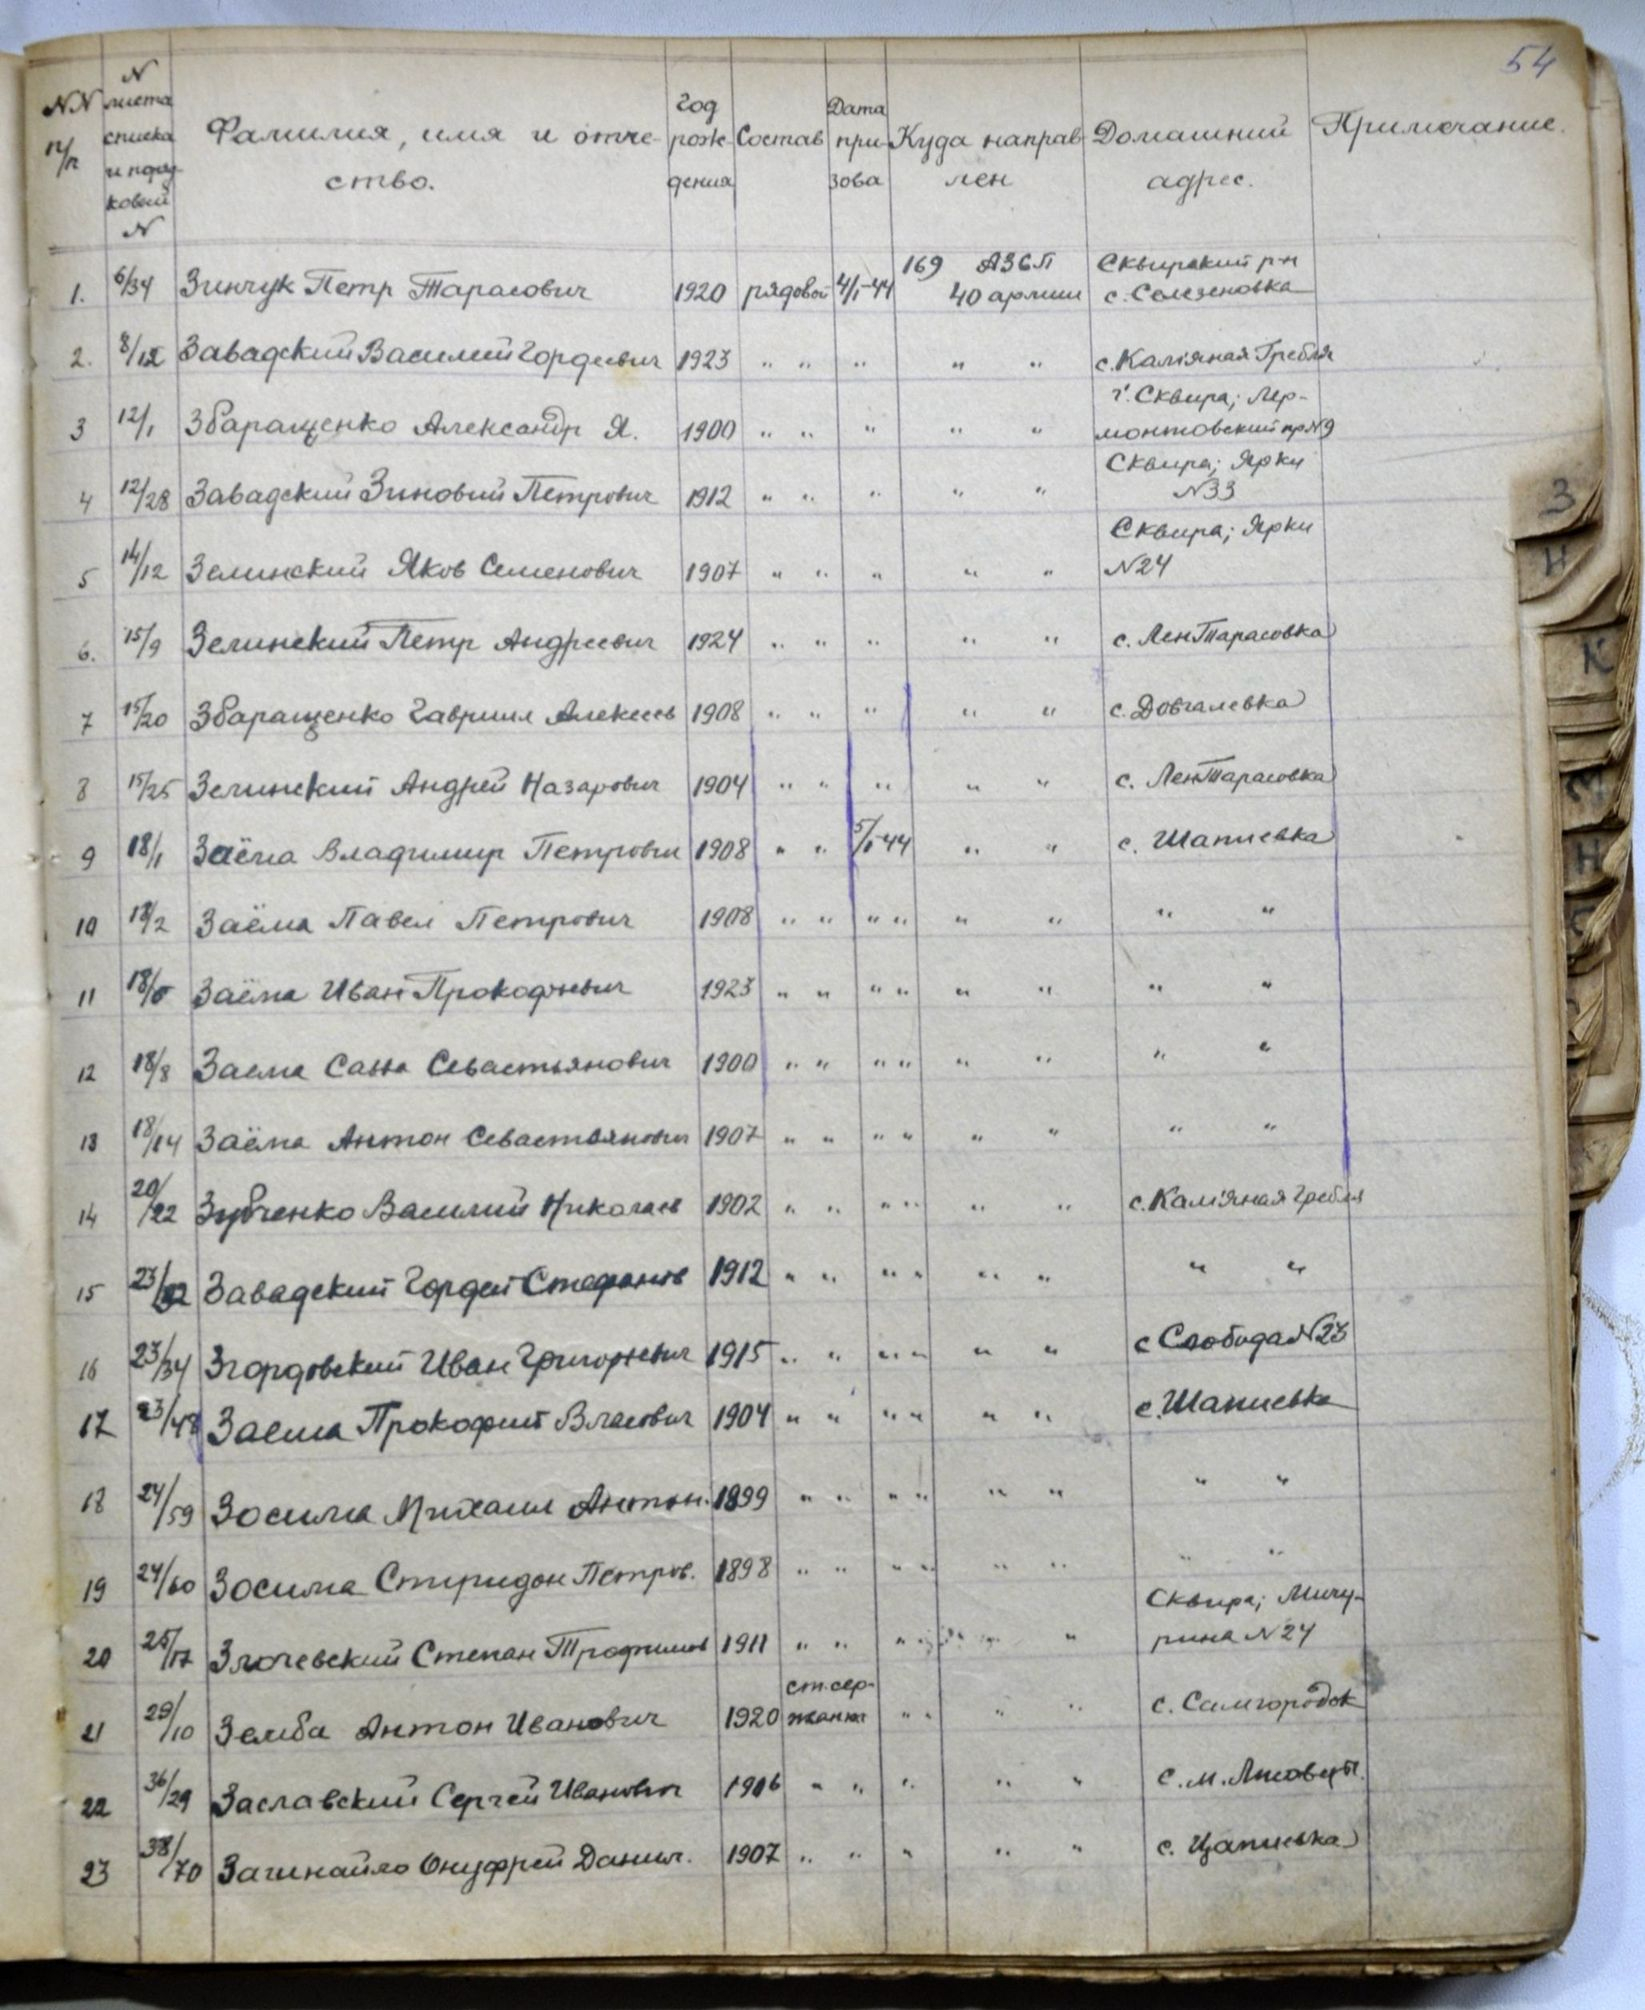 54
NN п/п | N листа списка и поряд-ковый N | Фамилия, имя и отче-ство. | Год рож-дения | Состав | Дата при-зова | Куда направ-лен | Домашний адрес. | Примечание.
1. 6/34 Зинчук Петр Тарасович 1920 рядовой 4/I-44 169 АЗСП 40 армии Сквирский р-н с. Селезеновка
2. 8/12 Завадский Василий Гордеевич 1923 " " " " " с. Кам'яная Гребля
3 12/1 Збаращенко Александр Я. 1900 " " " " " г. Сквира; Лер-монтовский пр N9
4 12/28 Завадский Зиновий Петрович 1912 " " " " " Сквира; Ярки N33
5 14/12 Зелинский Яков Семенович 1907 " " " " " Сквира; Ярки N24
6. 15/9 Зелинский Петр Андреевич 1924 " " " " " с. ЛенТарасовка
7 15/20 Збаращенко Гавриил Алексеев 1908 " " " " " с. Довгалевка
8 15/25 Зелинский Андрей Назарович 1904 " " " " " с. ЛенТарасовка
9 18/1 Заёма Владимир Петрович 1908 " " 5/I-44 " " с. Шапиевка
10 18/2 Заёма Павел Петрович 1908 " " " " " " " "
11 18/ Заёма Иван Прокофиевич 1923 " " " " " " " "
12 18/8 Заема Савва Севастьянович 1900 " " " " " " " "
13 18/14 Заёма Антон Севастьянович 1907 " " " " " " " "
14 20/22 Зубченко Василий Николаев 1902 " " " " " " с. Кам'яная Гребля
15 23/ Завадский Гордей Стефанов 1912 " " " " " " " "
16 23/34 Згордовский Иван Григорьевич 1915 " " " " " " с Слобода N23
17 23/48 Заема Прокофий Власович 1904 " " " " " " с. Шапиевка
18 24/59 Зосима Михаил Антон. 1899 " " " " " " " "
19 24/60 Зосима Спиридон Петров. 1898 " " " " " " " "
20 25/17 Злочевский Степан Трофимов 1911 " " " " " " Сквира; Мичу-рина N24
21 29/10 Земба Антон Иванович 1920 ст. сер-жант " " " " с. Самгородок
22 36/29 Заславский Сергей Иванович 1906 " " " " " с. м. Лисовцы.
23 38/70 Загинайло Онуфрей Данил. 1907 " " " " " с. Цапиевка
З
Н
К
М
Н